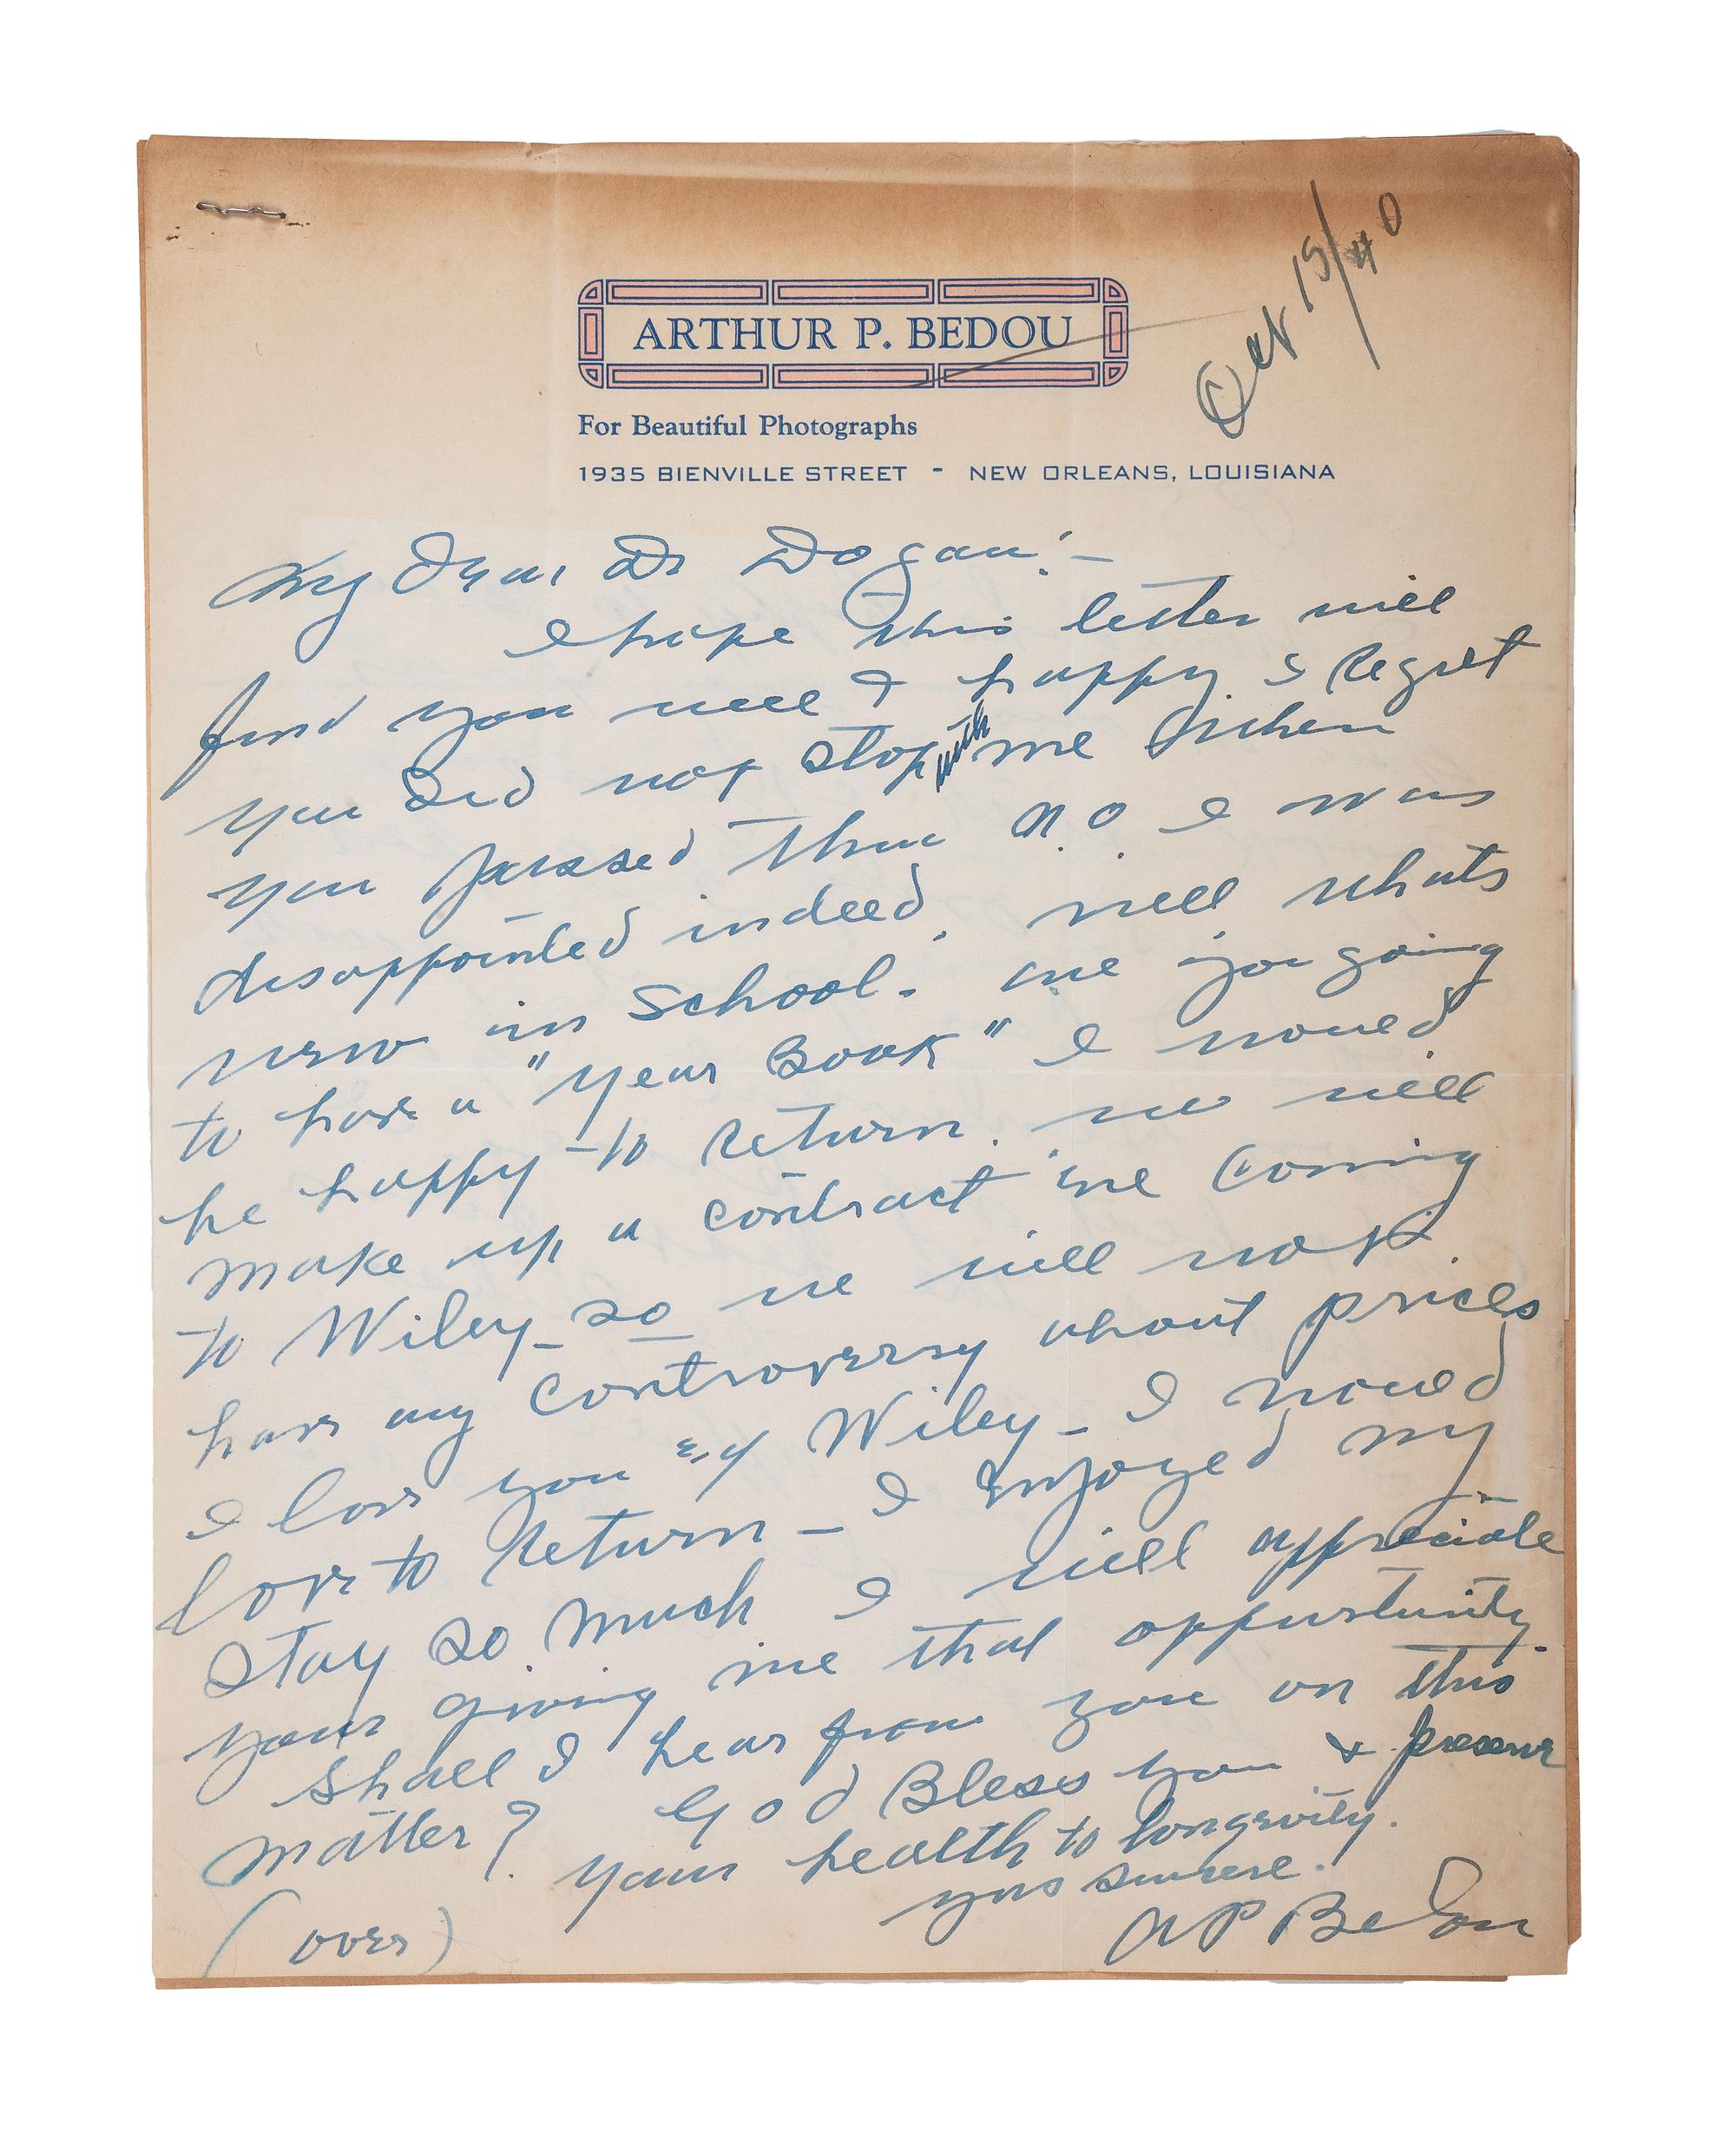 Oct 15/40
ARTHUR P. BEDOU
For Beautiful Photographs
1935 BIENVILLE STREET - NEW ORLEANS, LOUISIANA
My Dear Dr Dogan:-
I hope this letter will
find you well & happy. I Regret
you did not stop with me when
you passed thru N.O. I was
disappointed indeed. well whats
new in School. are you going
to have a "Year Book" I would
be happy to Return. we will
make up a contract me coming
to Wiley - so we will not
have any controversy about prices
I love you & Wiley - I would
love to Return - I Enjoyed my
stay so much I will appreciate
your giving me that oppurtunity.
Shall I hear from you on this
matter? God Bless you & preserve
your health to longevity.
yours sincere.
A P Bedou
(over)